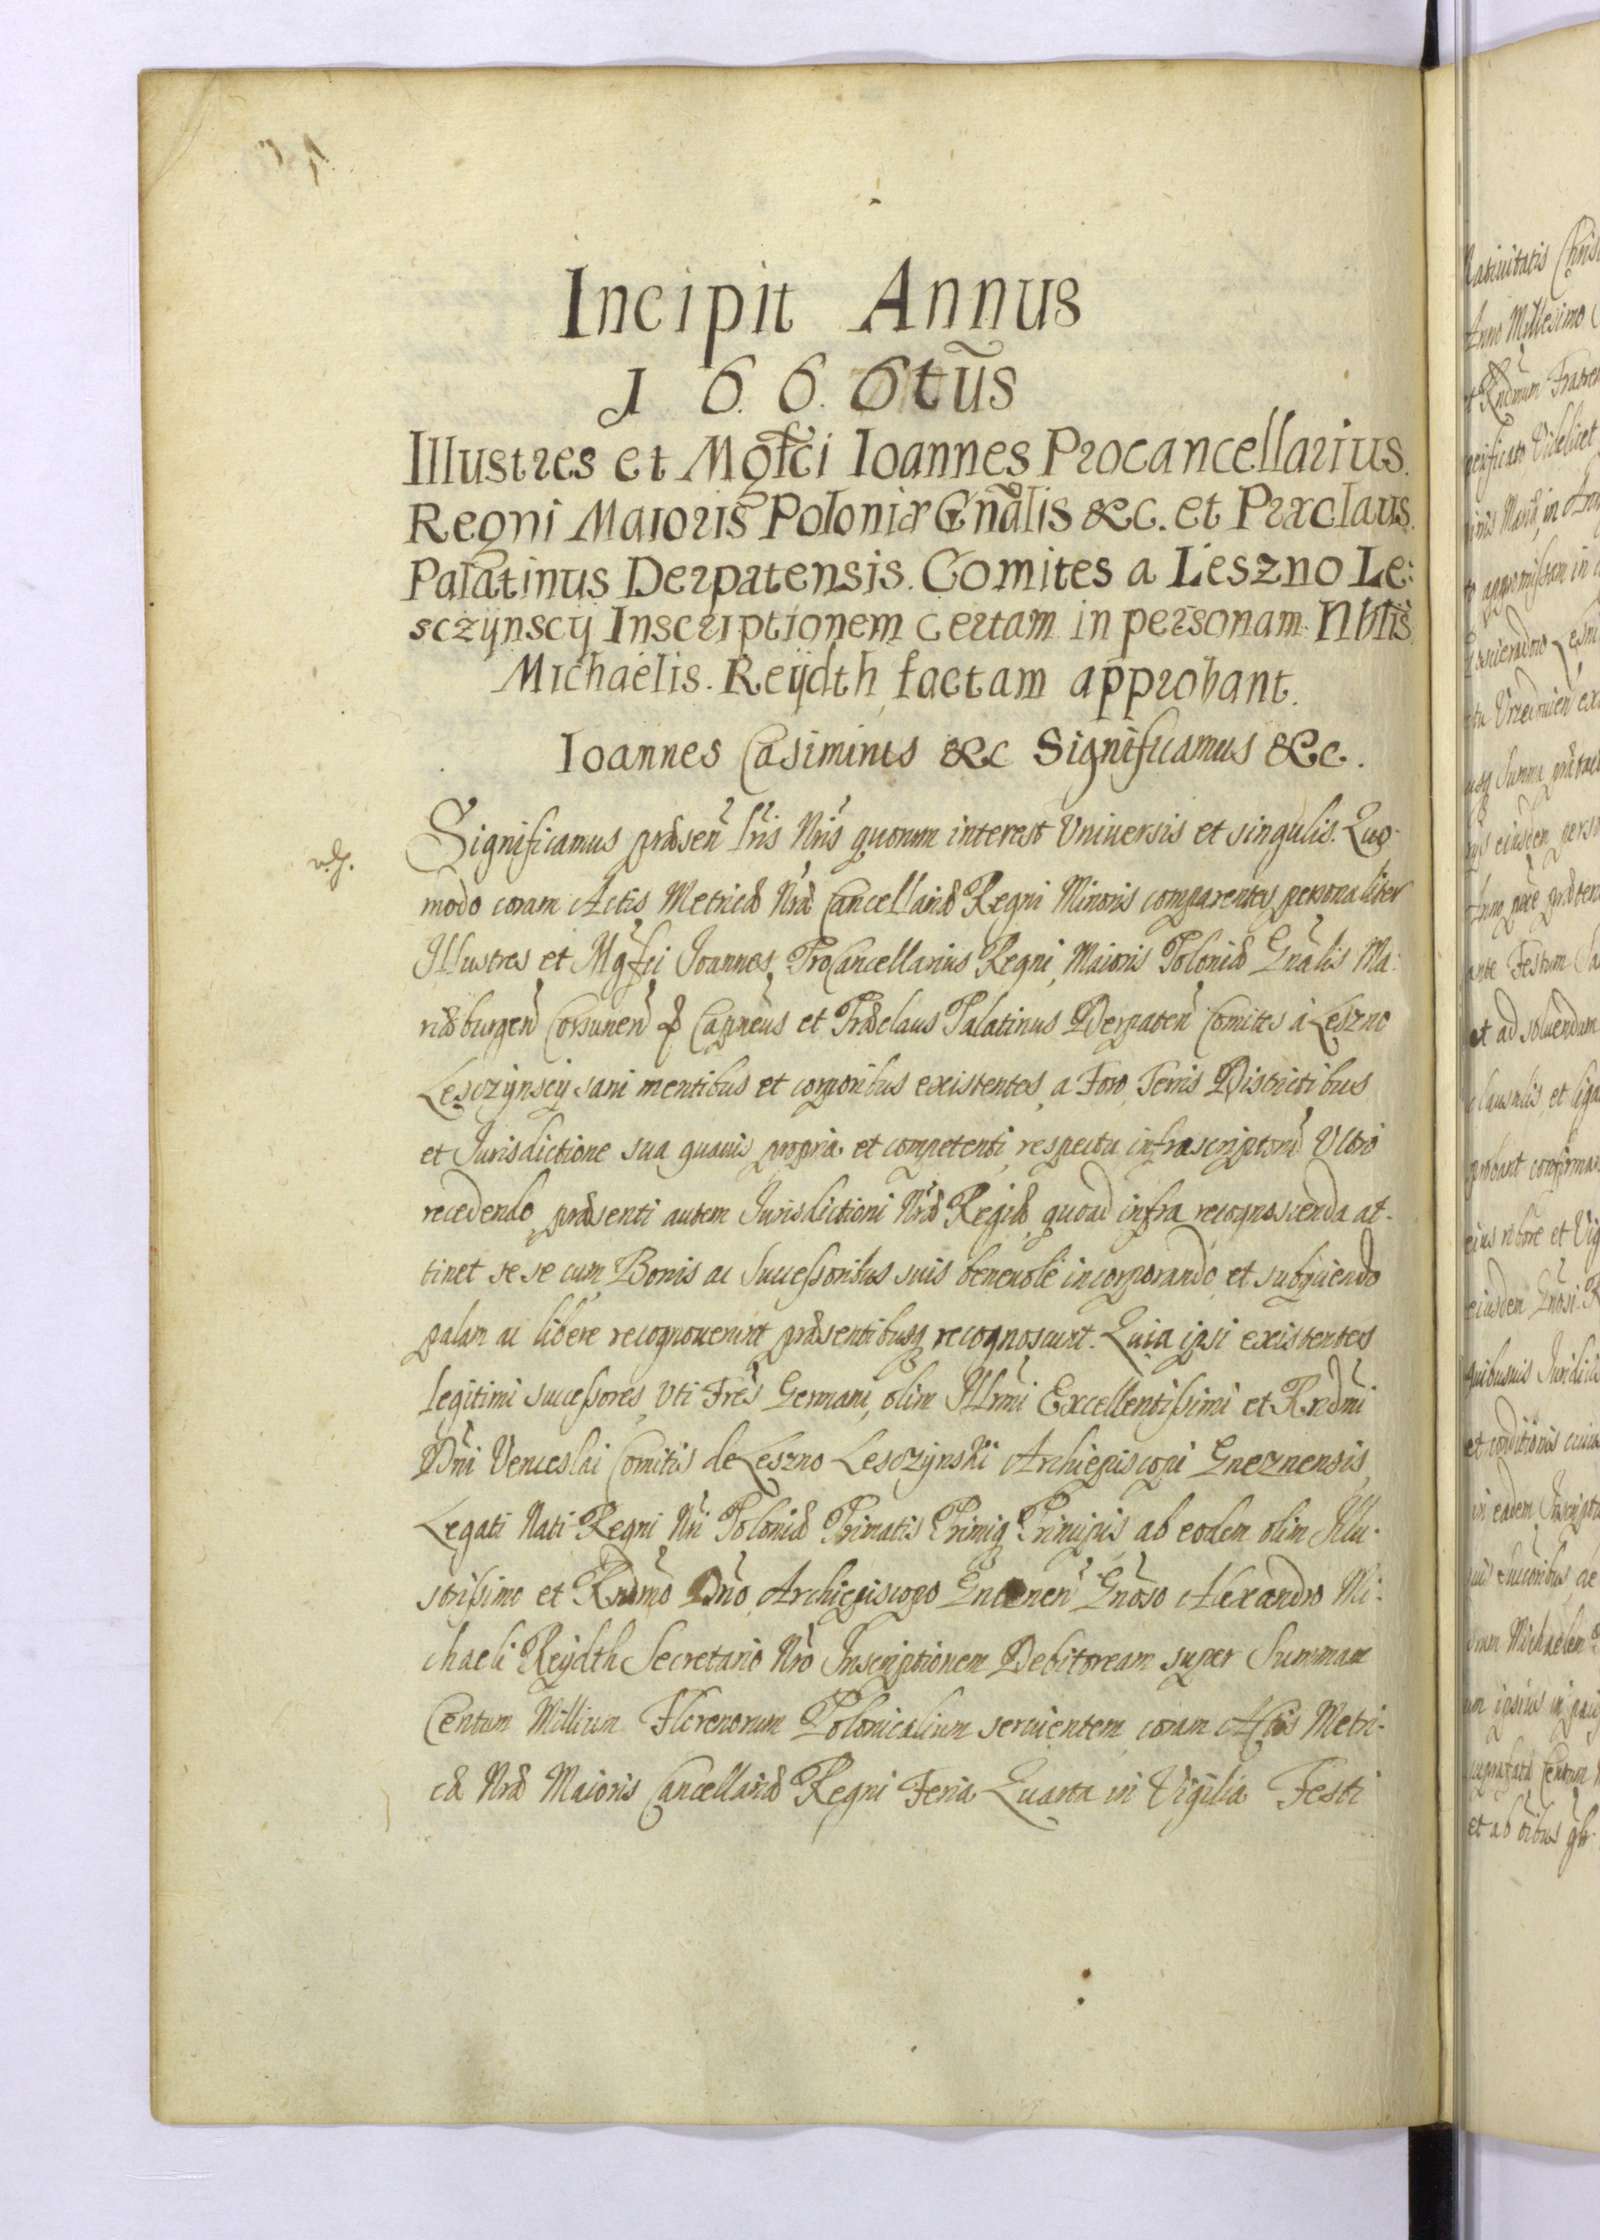 Incipit Annus
1 6. 6. 6tus
Illustres et Mgfci Ioannes Procancellarius.
Regni Maioris Poloniæ Gnãlis &c. et Præclaus.
Palatinus Derpatensis. Comites a Leszno Le:
sczÿnscÿ Inscriptionem certam in personam Nblis
Michaelis. Reÿdth factam approbant.
Ioannes Casimirus &c Significamus &c.
Significamus præsen Lris Nris quorum interest Universis et singulis. Quo-
modo coram Actis Metricæ Nræ Cancellariæ Regni Minoris comparentes personaliter
Illustres et Mgfci Joannes Procancellarius Regni, Maioris Poloniæ Gnalis Ma-
riæburgen Corsunen Capneus et Præclaus Palatinus Derpaten Comites à Leszno
Lesczÿnscÿ sani mentibus et corporibus existentes, a Foro, Terris Districtibus
et Jurisdictione sua quavis propria et competenti, respectu infrascriptorũ Ultro
recedendo, præsenti autem Jurisdictioni Nræ Regiæ, quoad infra recognoscenda at-
tinet sese cum Bonis ac Successoribus suis benevolè incorporando, et subÿciendo
palam ac libere recognoverunt præsentibusq recognoscunt. Quia ipsi existentes
legitimi successores, Vti Fres Germani, olim Illrmi Excellentissimi et Rndmi
Dni Venceslai Comitis de Leszno Lesczÿnski Archiepiscopi Gneznensis,
Legati Nati Regni Nri Poloniæ Primatis Primiq Principis, ab eodem olim Illu-
strissimo et Rndmo Dno Archiepiscopo Gnenen Gnoso Alexandro Mi-
chaeli Reÿdth Secretario Nro Inscriptionem Debitoream super Summam
Centum Millium Florenorum Polonicalium servientem, coram Actis Metri-
cæ Nræ Maioris Cancellariæ Regni Feria Quarta in Vigilia Festi